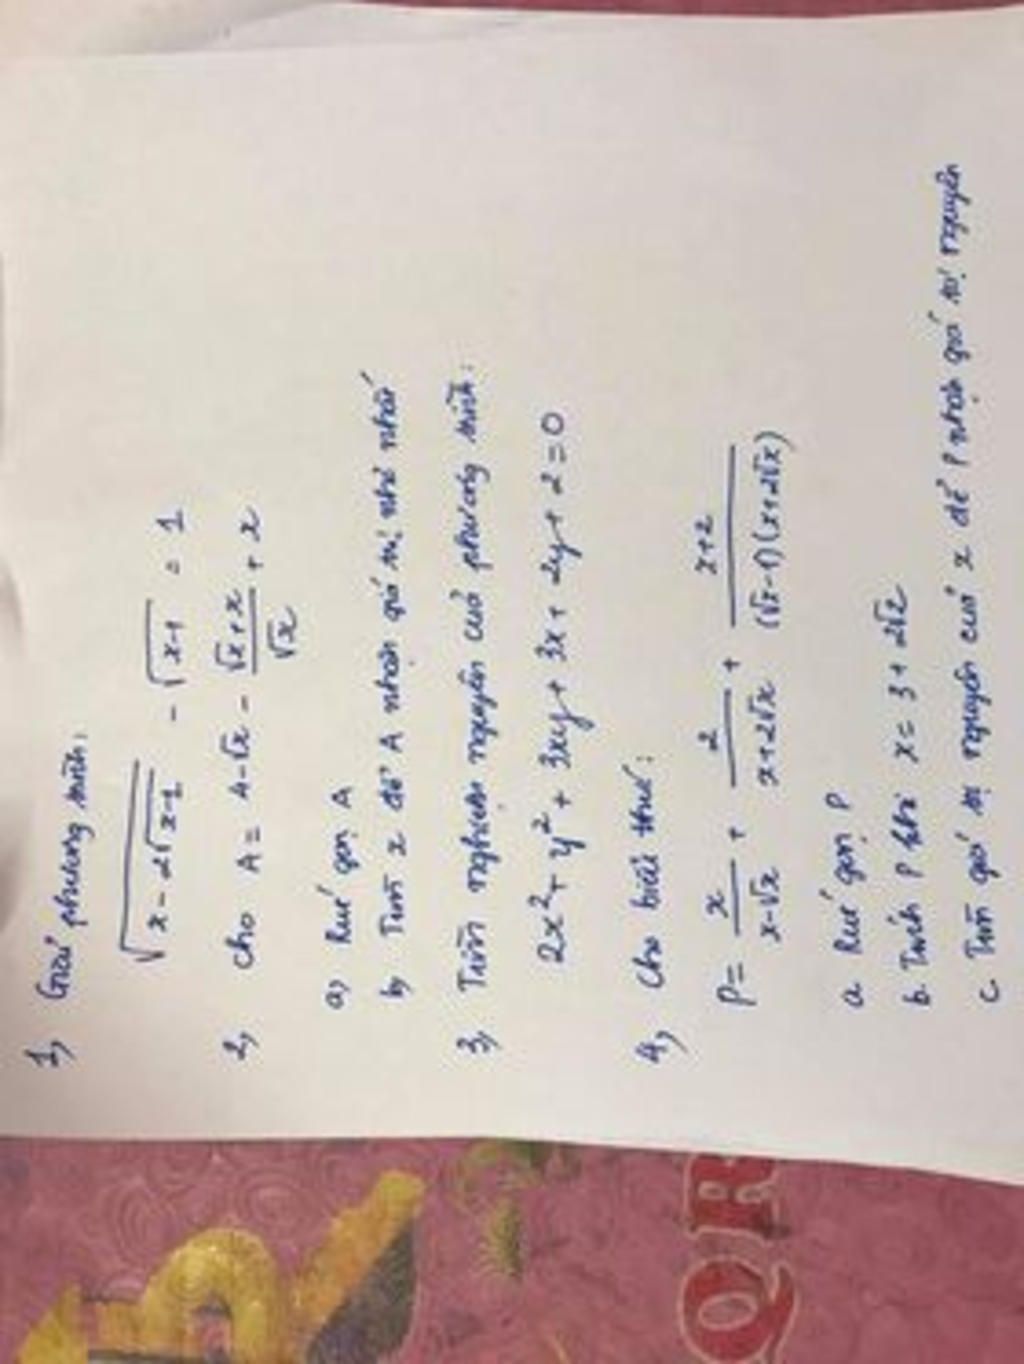 1, Giải phương trình:
√(x - 2√(x-1)) - √(x-1) = 1
2, cho A = 1-√x - (√x+x)/√x + x
a) Rút gọn A
b) Tìm x để A nhận giá trị nhỏ nhất
3, Tìm nghiệm nguyên của phương trình:
2x² + y² + 3xy + 3x + 2y + 2 = 0
4, Cho biểu thức:
P = x/(x-√x) + 2/(x+2√x) + (x+2)/((√x-1)(x+2√x))
a Rút gọn P
b. Tính P khi x = 3 + 2√2
c. Tìm giá trị nguyên của x để P nhận giá trị nguyên
QR